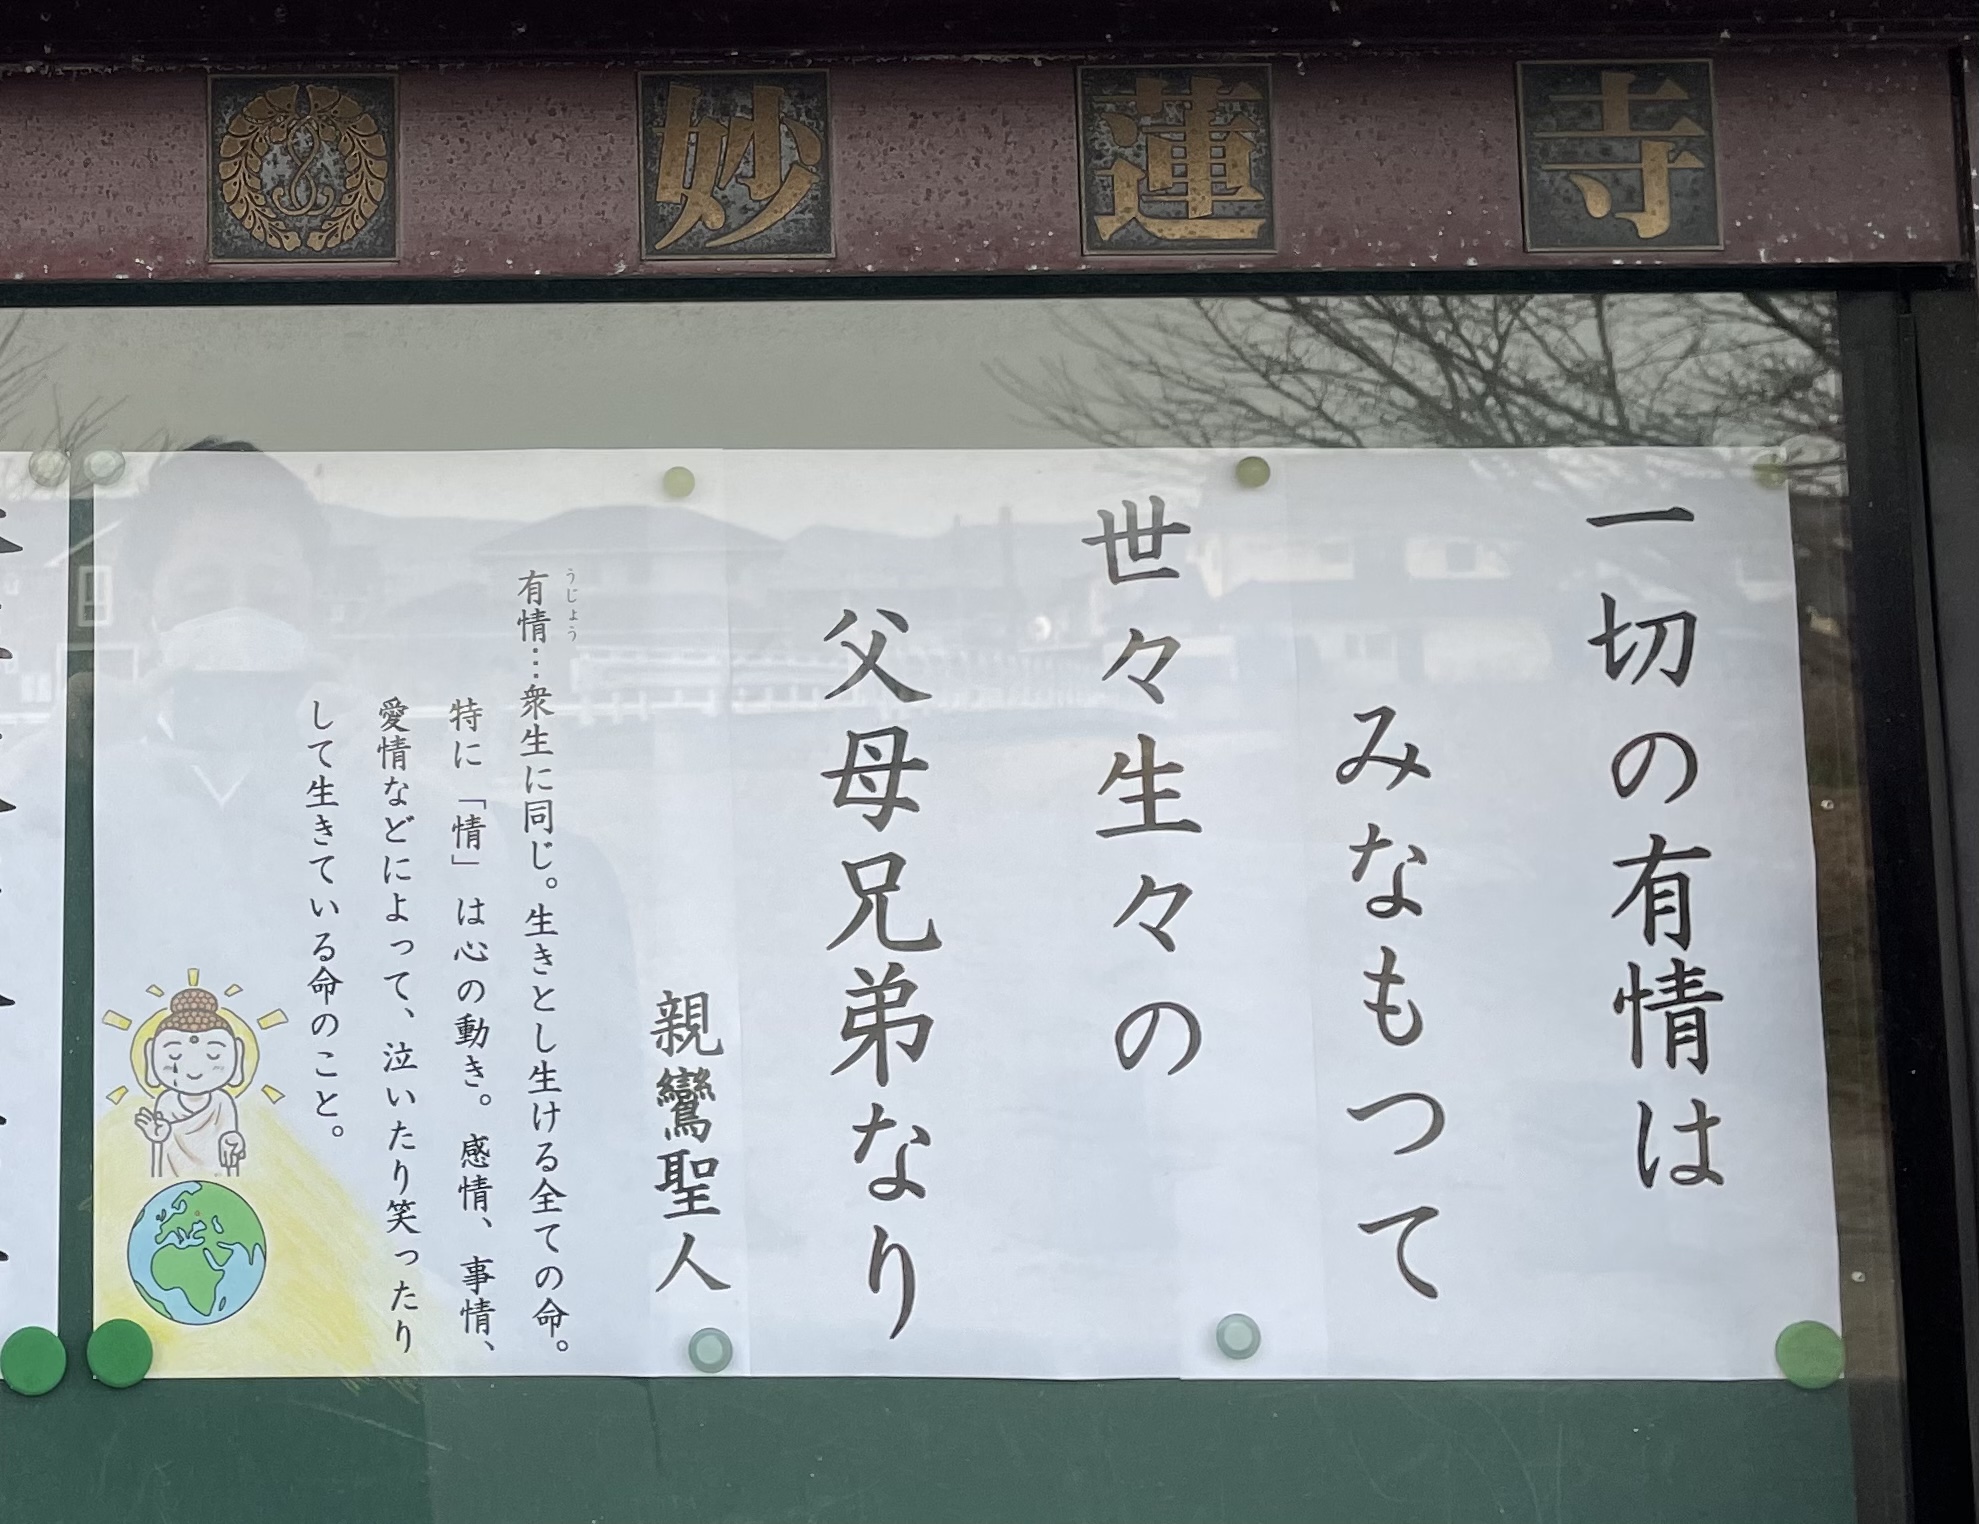 妙蓮寺
一切の有情は
みなもつて
世々生々の
父母兄弟なり
親鸞聖人
うじょう
有情…衆生に同じ。生きとし生ける全ての命。
特に「情」は心の動き。感情、事情、
愛情などによって、泣いたり笑ったり
して生きている命のこと。